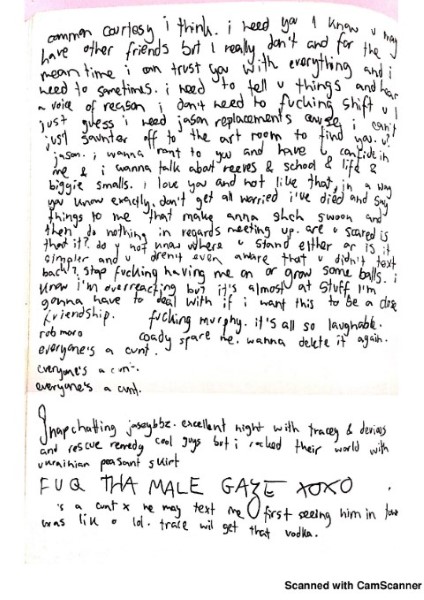 common courtesy i think. i need you i know u may
have other friends but i really don't and for the
mean time i can trust you with everything and i
need to sometimes. i need to tell u things and hear
a voice of reason i don't need to fucking shift u i
just guess i need jason replacements cause i can't
just saunter off to the art room to find you. u
jason. i wanna rant to you and have u confide in
me & i wanna talk about reeves & school & life &
biggie smalls. i love you and not like that, in a way
you know exactly. don't get all worried i've died and say
things to me that make anna shch swoon and
then do nothing in regards meeting up. are u scared is
that it? do y not know where u stand either or is it
simpler and u aren't even aware that u didn't text
back? stop fucking having me on or grow some balls. i
know i'm overreacting but it's almost at stuff i'm
gonna have to deal with if i want this to be a close
friendship. fucking murphy. it's all so laughable.
rob moro coady spare me. wanna delete it again.
everyone's a cunt.
everyone's a cun-.
everyone's a cunt.
Snapchatting jaseybbz. excellent night with tracey & devices
and rescue remedy cool guys but i rocked their world with
ukrainian peasant skirt
FUQ THA MALE GAZE XOXO
's a cunt x he may text me first seeing him in
was like o lol. trace wil get that vodka.
Scanned with CamScanner